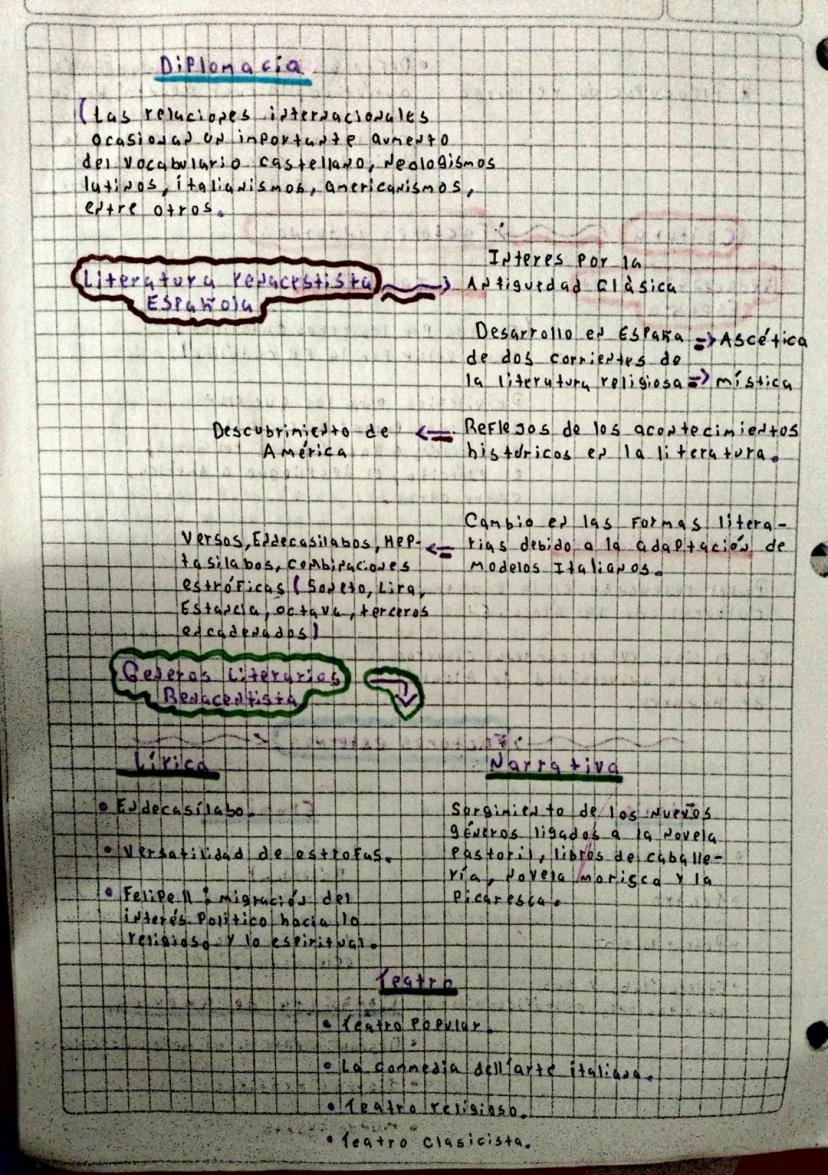 Diplomacia
(Las relaciones internacionales
ocasionan un importante aumento
del vocabulario castellano, neologismos
latinos, italianismos, americanismos,
entre otros.
Literatura renacestista
Española
Interes por la
Antiguedad Clásica
Desarrollo en España => Ascética
de dos corrientes de
la literatura religiosa => mística
Reflejos de los acontecimientos
históricos en la literatura.
Descubrimiento de
América
Cambio en las formas litera-
rias debido a la adaptación de
modelos Italianos.
Versos, Endecasilabos, Hep-
tasilabos, combinaciones
estróficas (Soneto, Lira,
Estancia, octava, terceros
encadenados)
Generos Literarios
Renacentista
Lírica
• Endecasílabo.
• Versatilidad de estrofas.
• Felipe II : migración del
interés Político hacia lo
religioso y lo espiritual.
Narrativa
Surgimiento de los nuevos
géneros ligados a la novela
Pastoril, libros de caballe-
ría, novela morisca y la
Picaresca.
Teatro
• Teatro Popular.
• La commedia dell'arte italiana.
• Teatro religioso.
• Teatro clasicista.